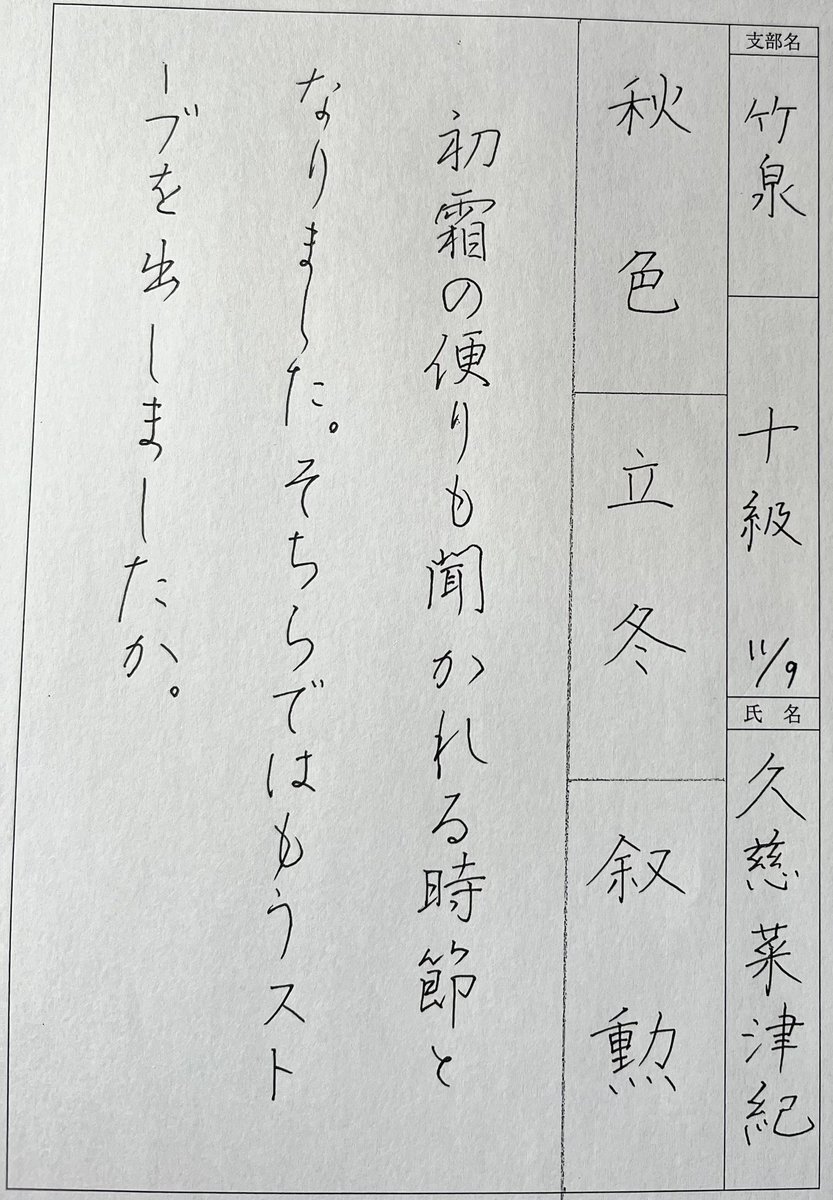 支部名
竹泉
十級 11/9
氏名
久慈菜津紀
秋色
立冬
叙勲
初霜の便りも聞かれる時節と
なりました。そちらではもうスト
ーブを出しましたか。